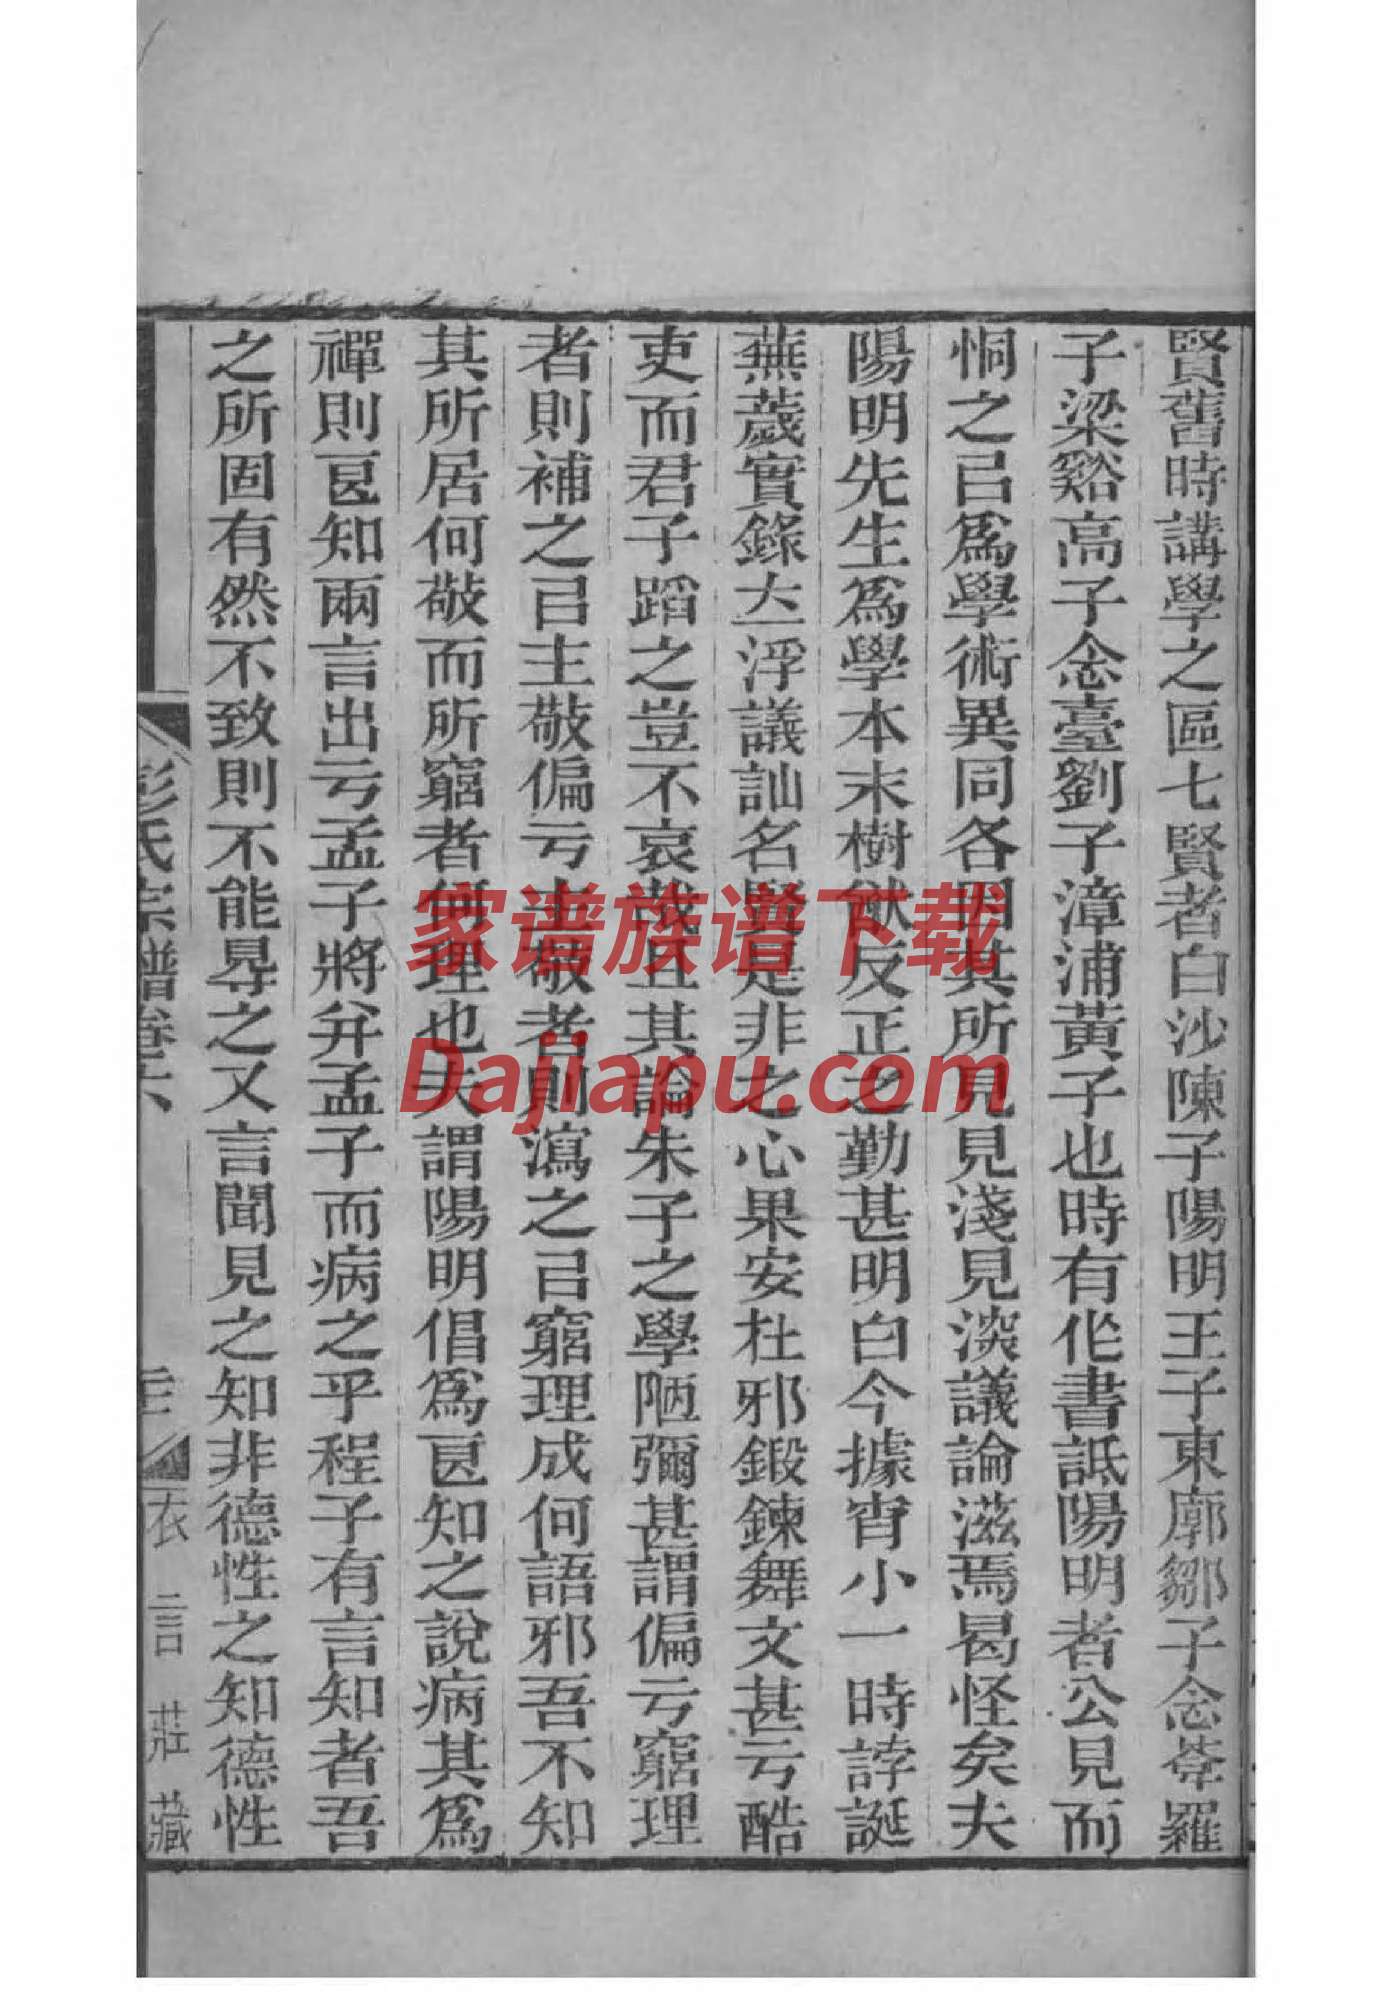 賢舊時講學之區七賢者白沙陳子陽明王子東廓鄒子念菴羅
子梁谿高子念臺劉子漳浦黃子也時有作書詆陽明者公見而
恫之㠯爲學術異同各因其所見見淺見淡議論滋焉曷怪矣夫
陽明先生爲學本末樹猷反正之勤甚明白今據宵小一時誖誕
蕪薉實錄厺浮議訕名賢是非之心果安杜邪鍛鍊舞文甚亏酷
吏而君子蹈之豈不哀哉且其論朱子之學陋彌甚謂偏亏窮理
者則補之㠯主敬偏亏主敬者則瀉之㠯窮理成何語邪吾不知
其所居何敬而所窮者何理也夫謂陽明倡爲㫐知之說病其爲
禪則㫐知兩言出亏孟子將弁孟子而病之乎程子有言知者吾
之所固有然不致則不能㝵之又言聞見之知非德性之知德性
彭氏宗譜卷六
衣言莊藏
家谱族谱下载
Dajiapu.com